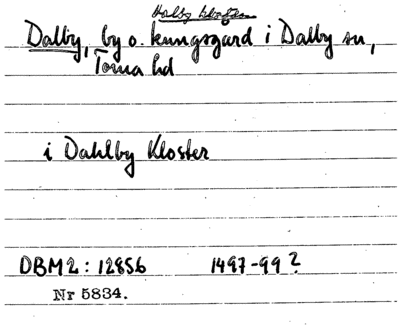 Dalby kloster
Dalby, by o. kungsgård i Dalby sn,
Torna hd
i Dahlby Kloster
DBM2: 12856 1497-99?
Nr 5834.